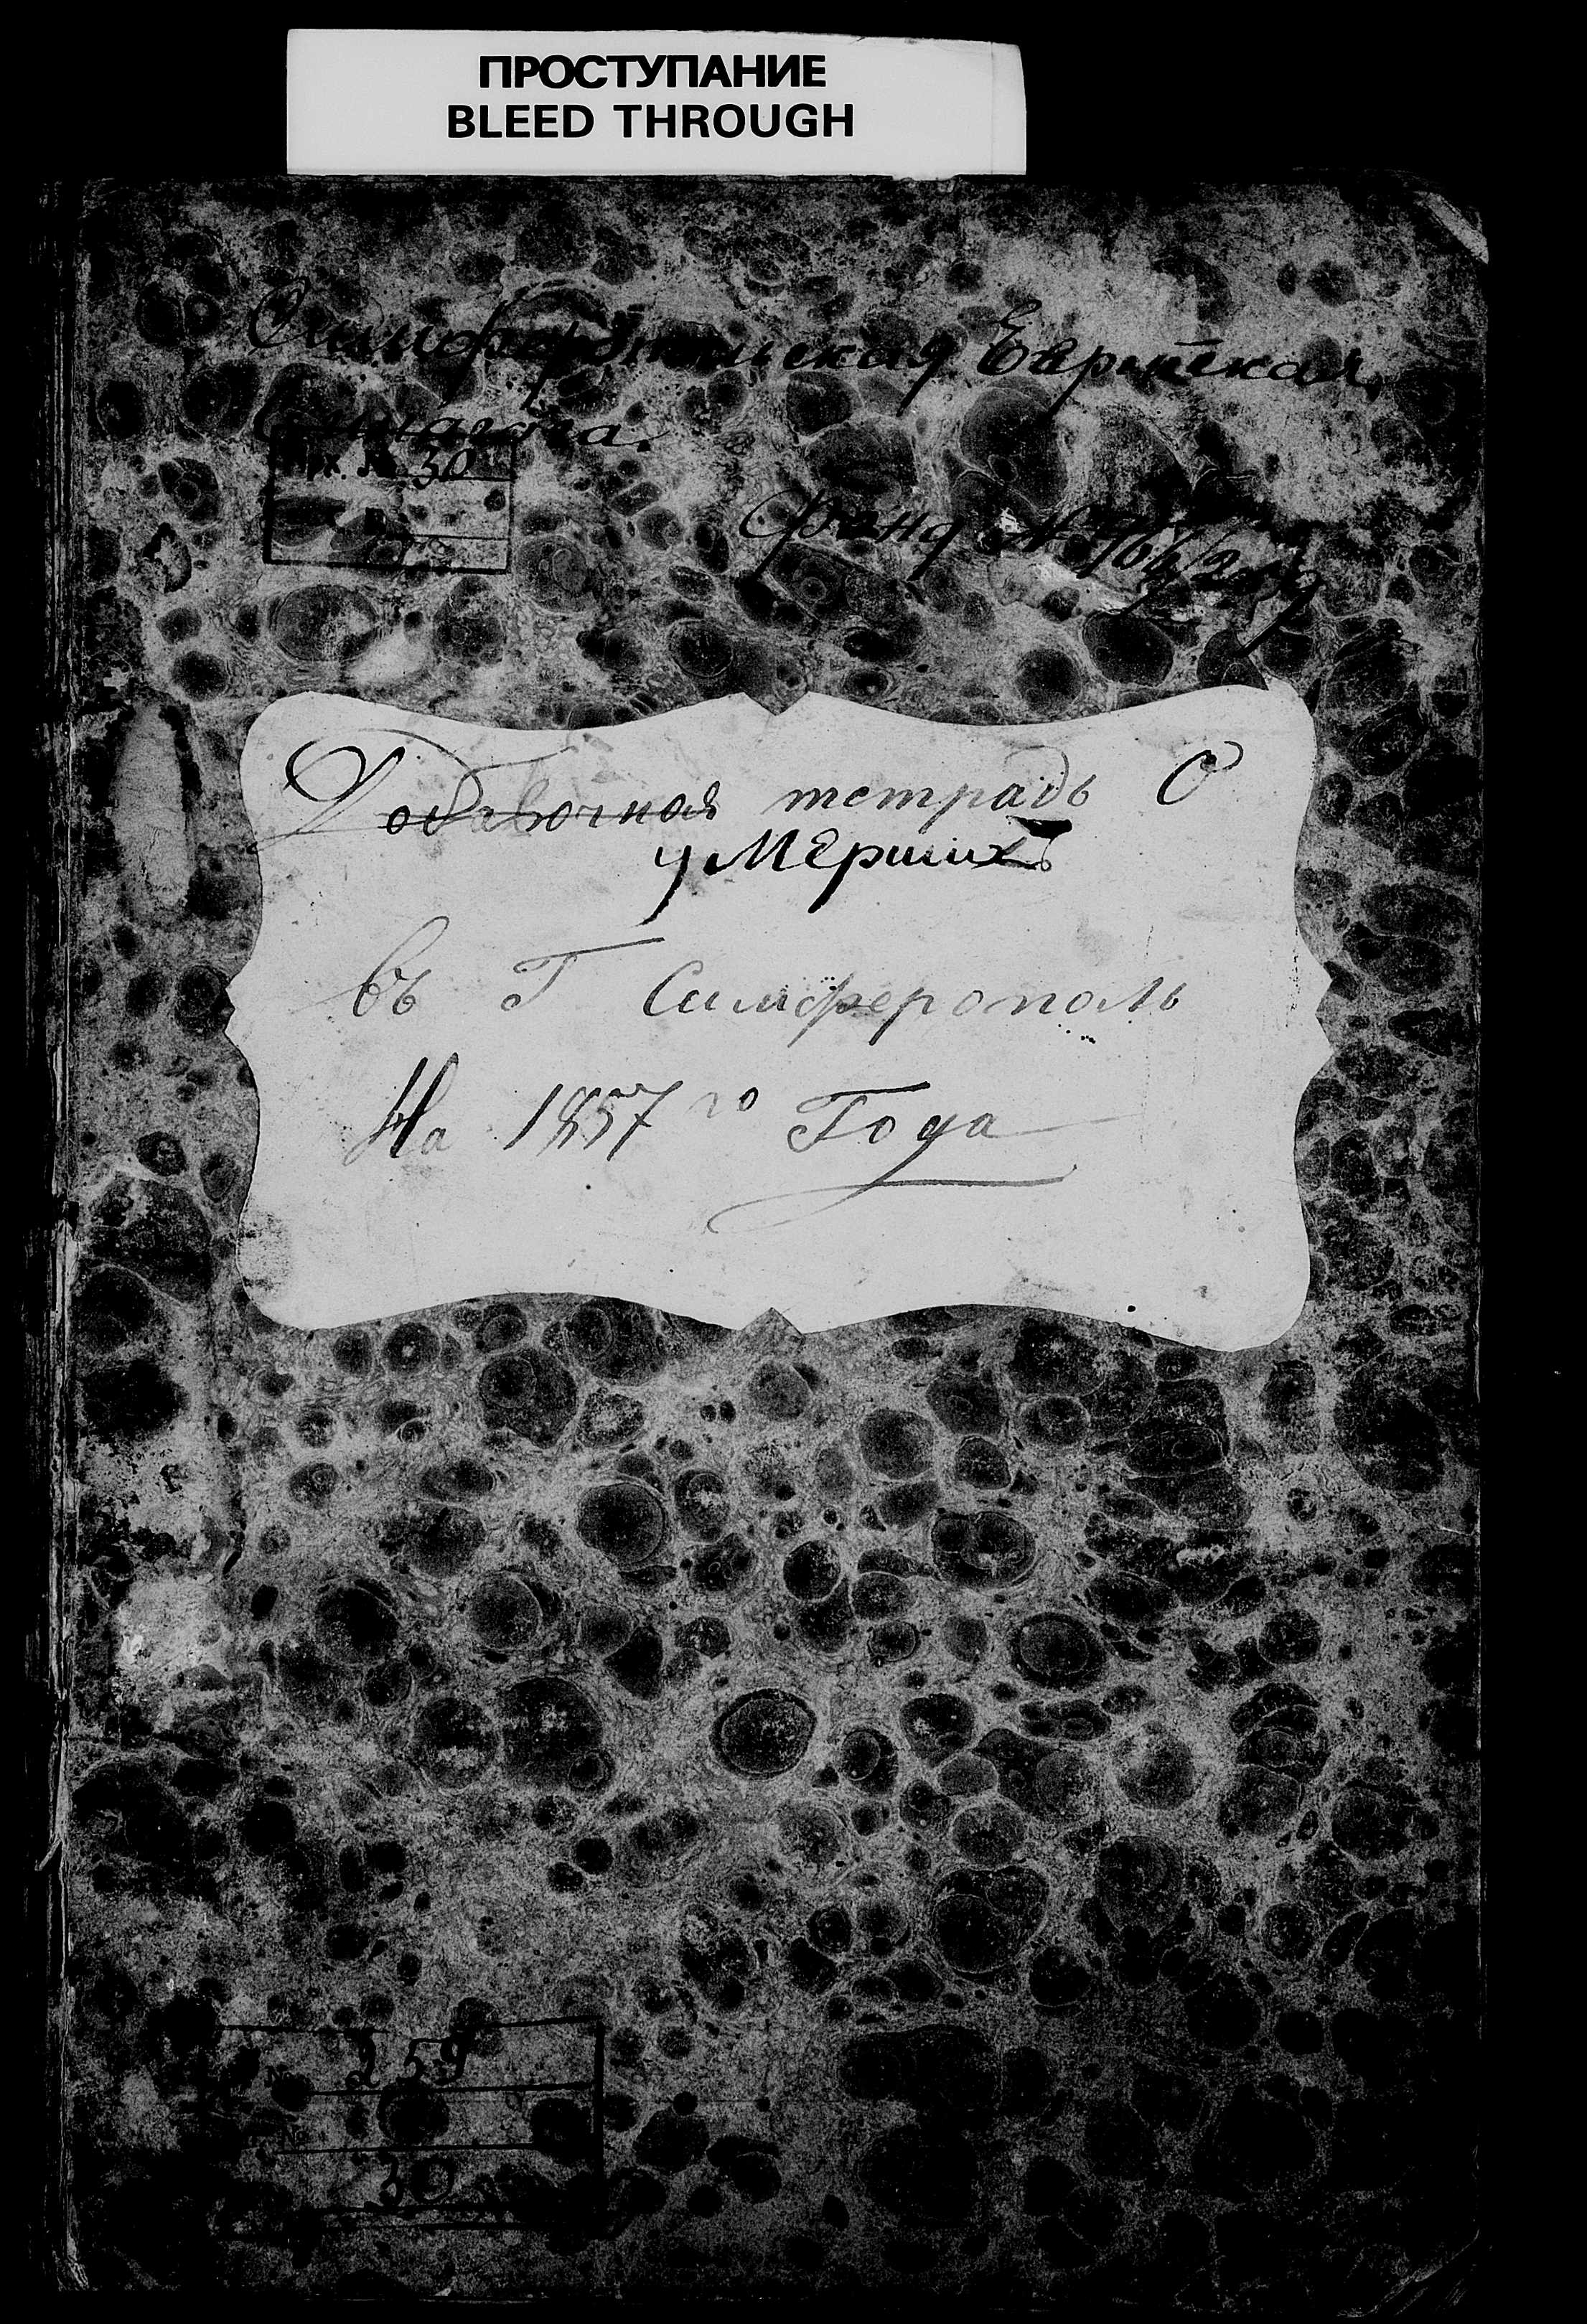 ПРОСТУПАНИЕ
BLEED THROUGH
Симферопольская Еврейская
Синагога.
30
Фонд №
Добавочная тетрадь О
умерших
въ Г Симферополь
На 1857 го Года
№ 259
30